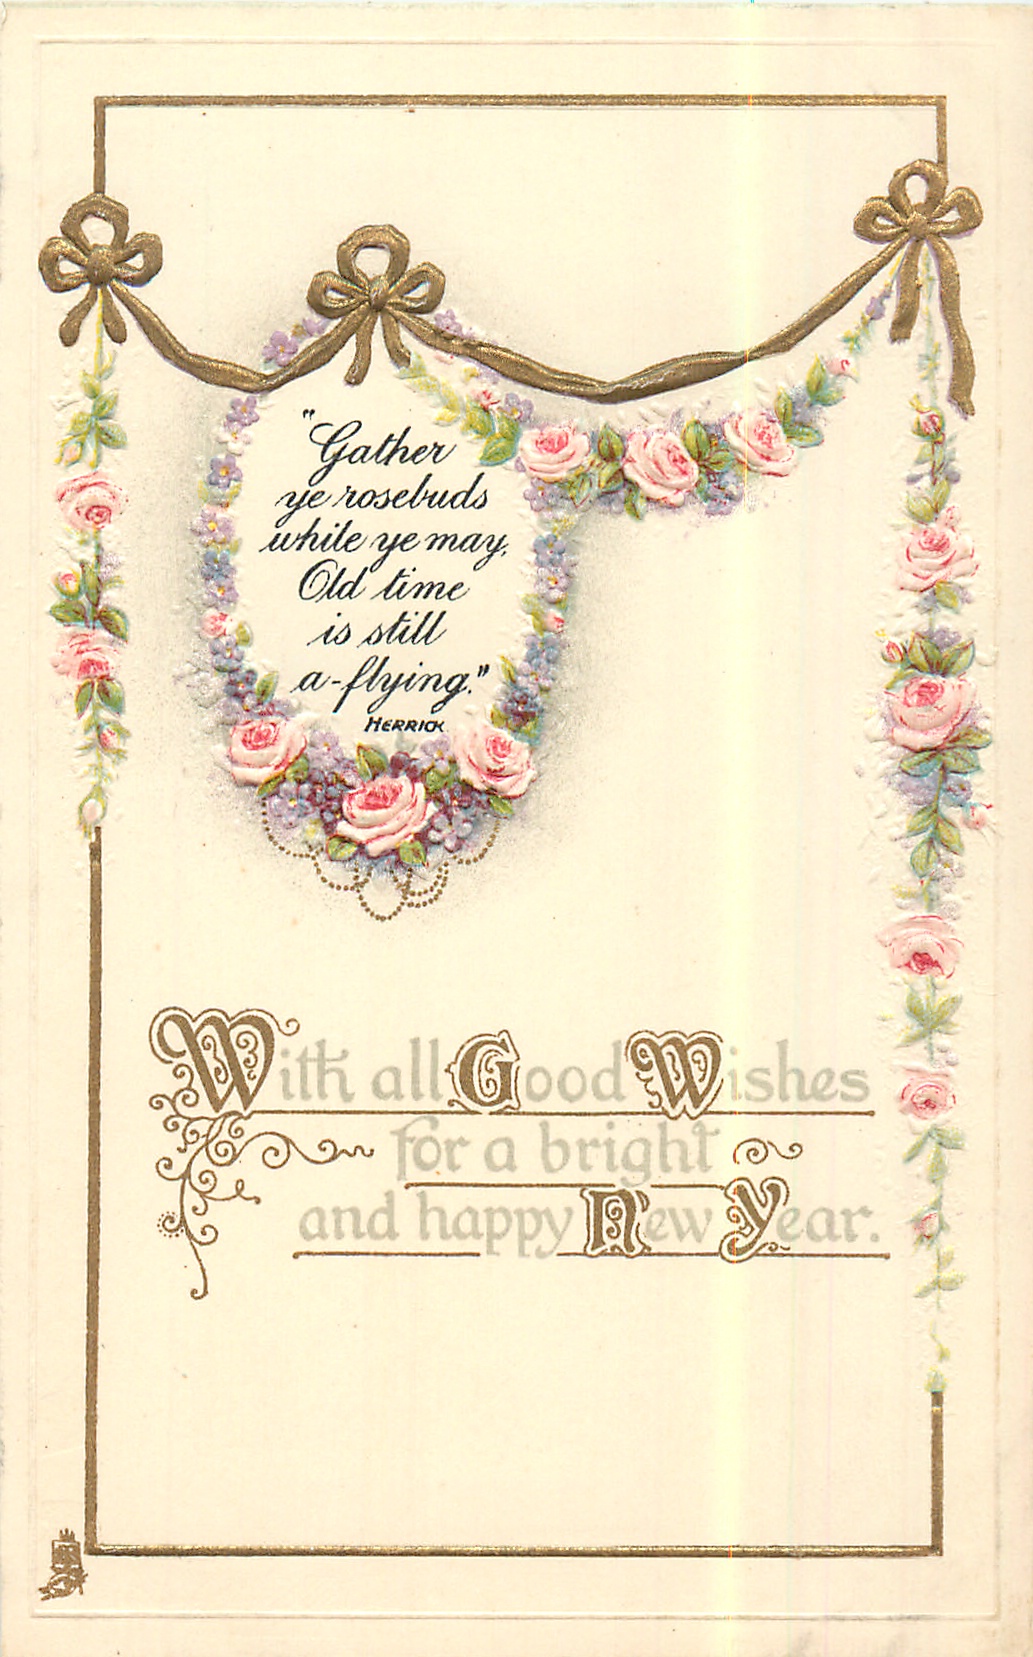 "Gather
ye rosebuds
while ye may,
Old time
is still
a-flying."
HERRICK
With all Good Wishes
for a bright
and happy New Year.